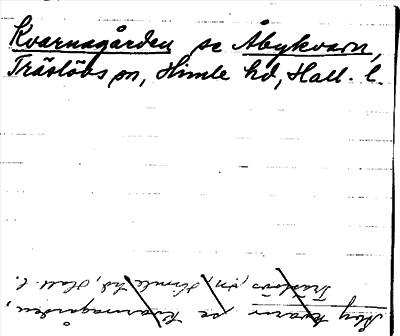 Kvarnagården se Åbykvarn,
Träslövs sn, Himle hd, Hall. l.
Åby kvarn se Kvarnagården,
Träslövs sn, Himle hd, Hall. l.